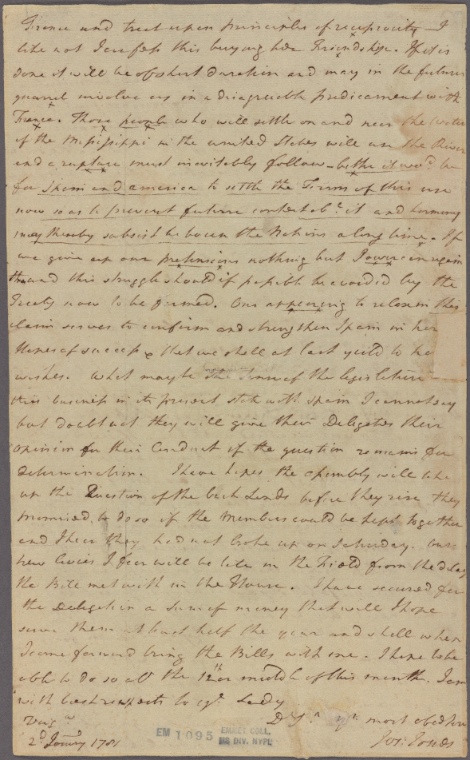 France and treat upon principles of reciprocity I
like not I confess this buying her Friendship. If it is
done it will be of short duration and may in the future
quarrel involve us in a disagreable predicament with
France. Those people who will settle on and near the Waters
of the Mississippi in the united States will use the River
and a rupture must inevitably follow better it wod. be
for Spain and america to settle the Terms of this use
now so as to prevent future contest abt. it and harmony
may thereby subsist between the Nations a long time. If
we give up our pretensions nothing but Power can regain
them and this struggle should if possible be avoided by the
Treaty now to be formed. Our appearing to relax in this
claim serves to confirm and strengthen Spain in her
Hopes of success & that we shall at last yeild to her
wishes. What may be the Sense of the legislature
this business in its present state with Spain I cannot say
but doubt not they will give their Delegates their
opinion for their Conduct if the question remains for
determination. I have hopes the assembly will take
up the Question of the back Lands before they rise they
promised to do so if the Members could be kept together
and I hear they had not broke up on Saturday. Our
new levies I fear will be late in the Field from the delay
the Bill met with in the House. I have secured for
the Delegation a Sum of money that will I hope
serve them at least half the year and shall when
I come forward bring the Bills with me. I hope to be
able to do so abt the 12th or middle of this month. I am
with best respects to yr. Lady
Dr Sr. yr. most obed Serv
Virga
Jos: Jones
2d Janury 1781
EM 1095 EMMET COLL.
MS. DIV. NYPL